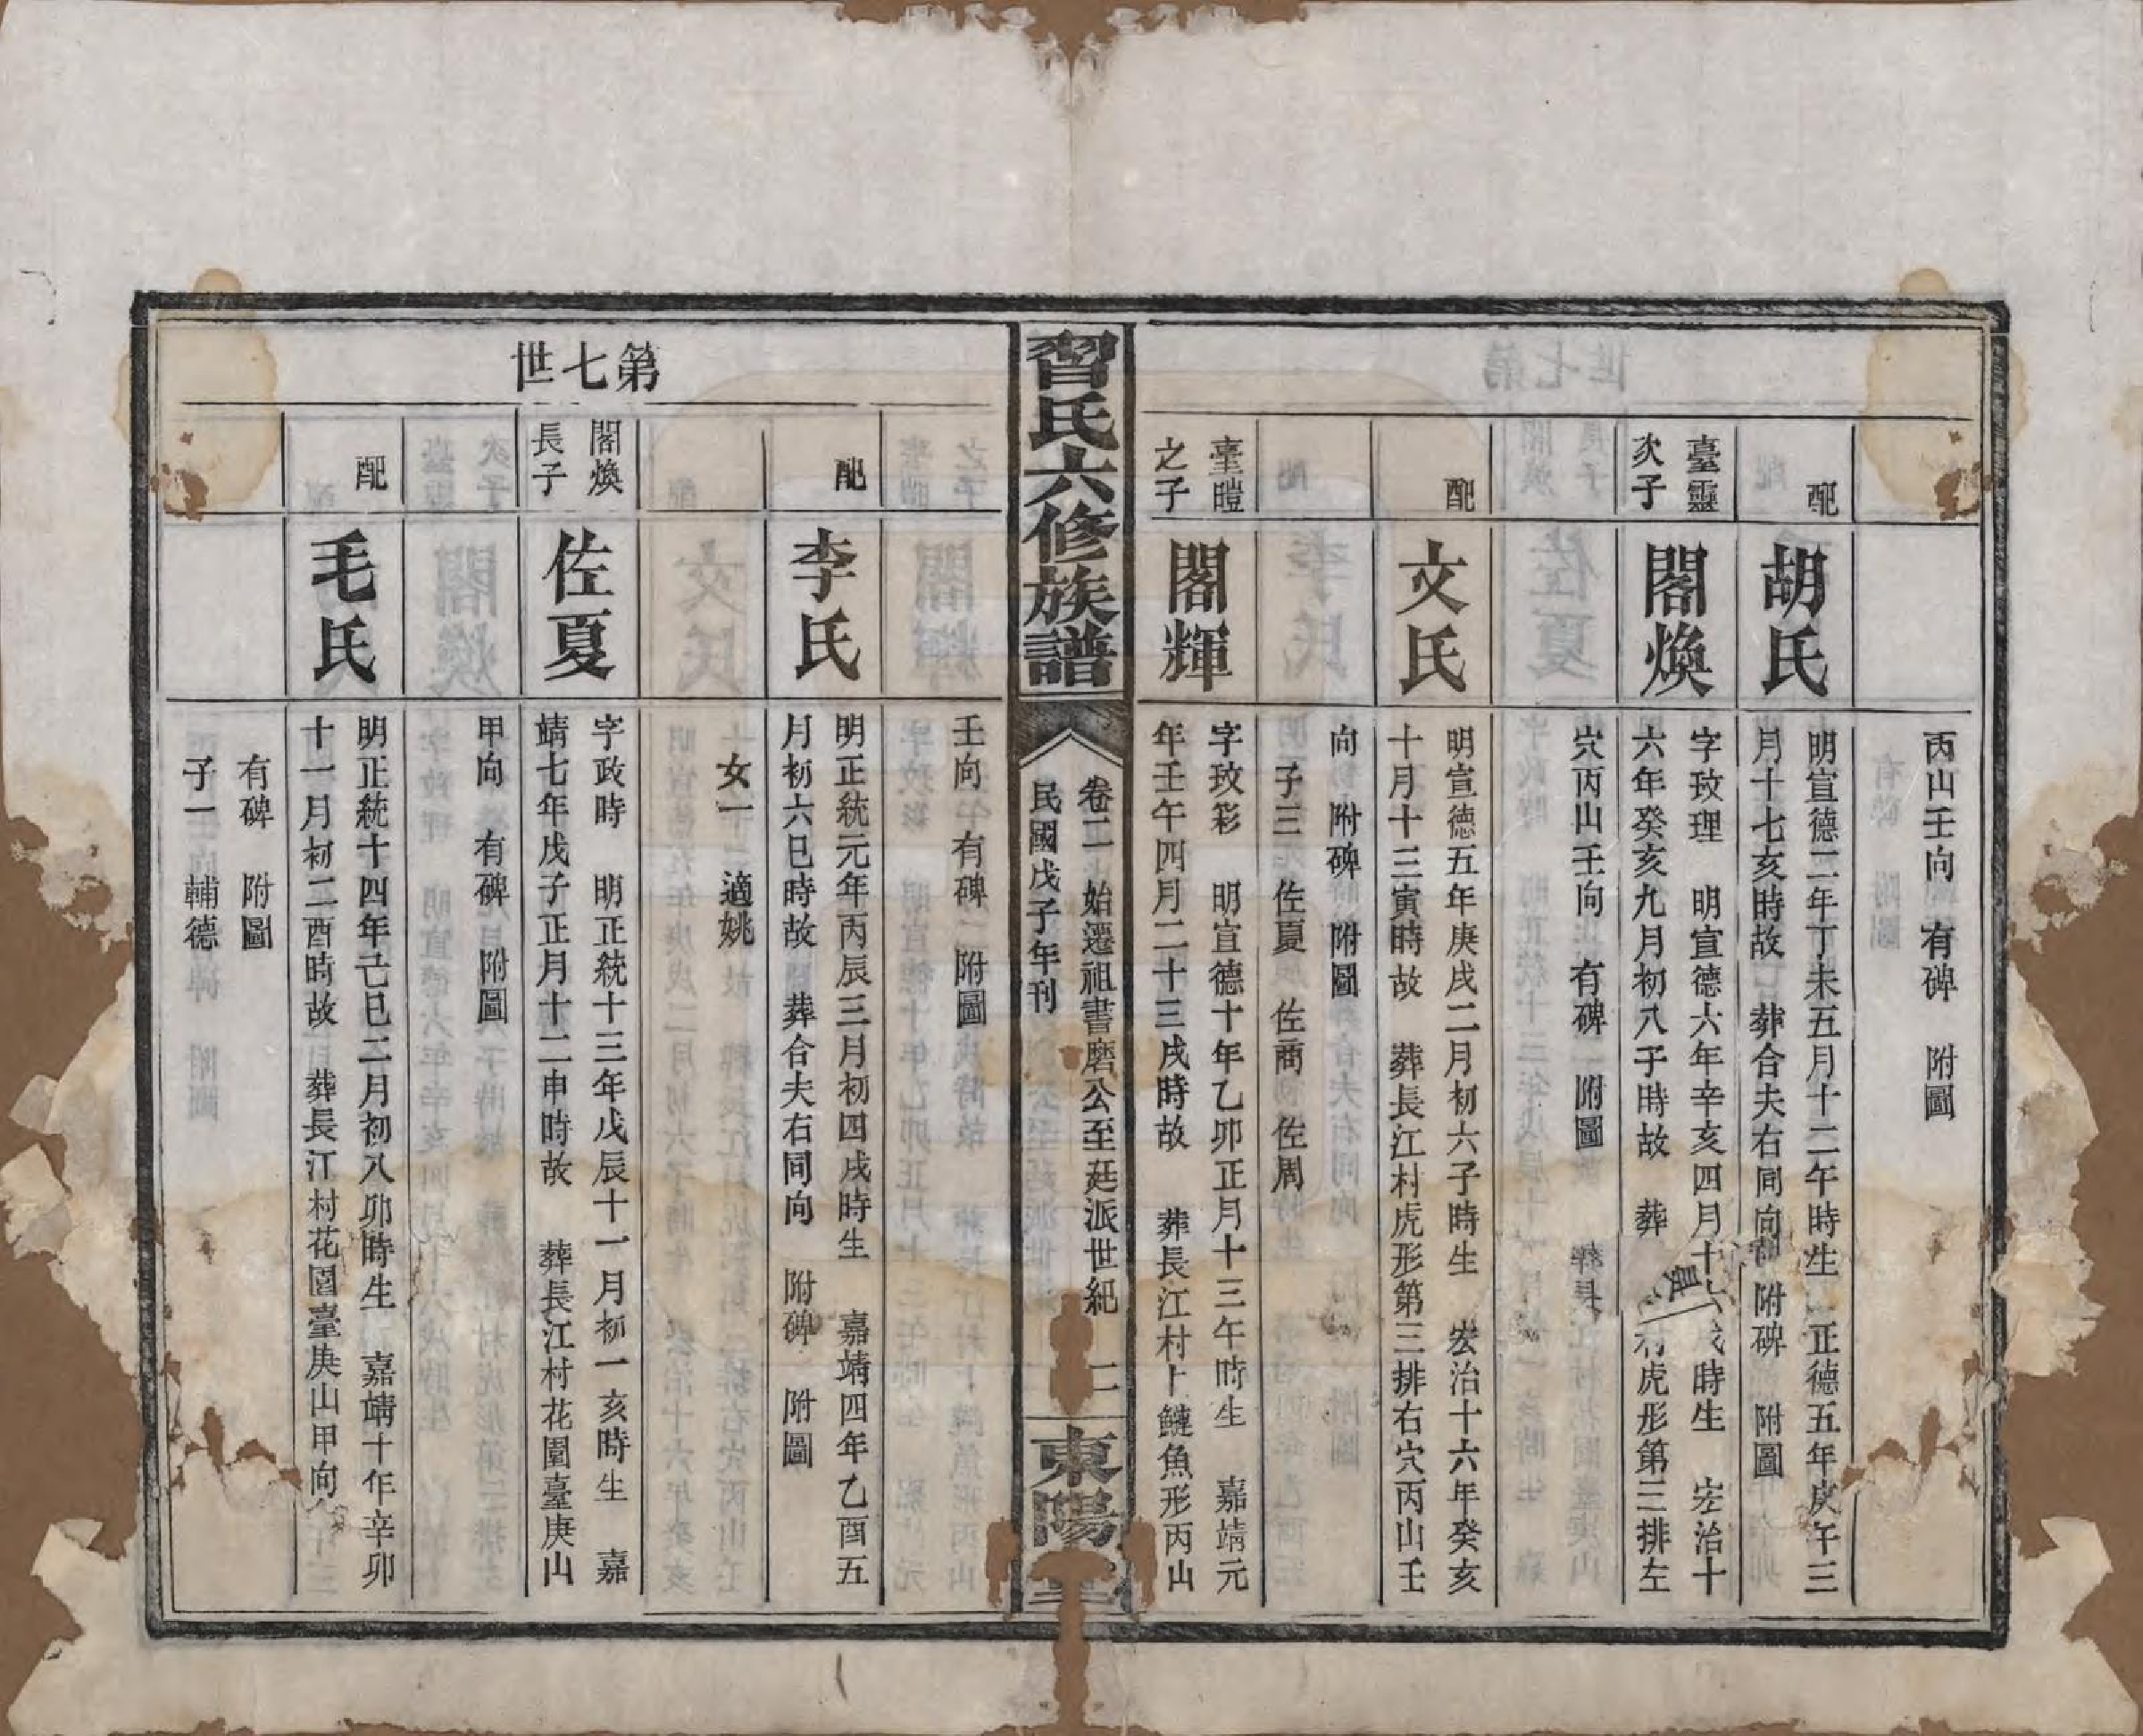 丙山壬向 有碑 附圖
配
胡氏
明宣德二年丁未五月十二午時生 正德五年庚午三
月十七亥時故 葬合夫右同向 附碑 附圖
臺靈
次子
閣煥
字玟理 明宣德六年辛亥四月十六戌時生 宏治十
六年癸亥九月初八子時故 葬 村虎形第三排左
穴丙山壬向 有碑 附圖
配
文氏
明宣德五年庚戌二月初六子時生 宏治十六年癸亥
十月十三寅時故 葬長江村虎形第三排右穴丙山壬
向 附碑 附圖
子三 佐夏 佐商 佐周
臺暟
之子
閣輝
字玟彩 明宣德十年乙卯正月十三午時生 嘉靖元
年壬午四月二十三戌時故 葬長江村上鰱魚形丙山
習氏六修族譜
卷二 始遷祖書磨公至廷派世紀 二
民國戊子年刊
東陽堂
第七世
壬向 有碑 附圖
配
李氏
明正統元年丙辰三月初四戌時生 嘉靖四年乙酉五
月初六巳時故 葬合夫右同向 附碑 附圖
女一 適姚
閣煥
長子
佐夏
字政時 明正統十三年戊辰十一月初一亥時生 嘉
靖七年戊子正月十二申時故 葬長江村花園臺庚山
甲向 有碑 附圖
配
毛氏
明正統十四年己巳二月初八卯時生 嘉靖十年辛卯
十一月初二酉時故 葬長江村花園臺庚山甲向
有碑 附圖
子一 輔德